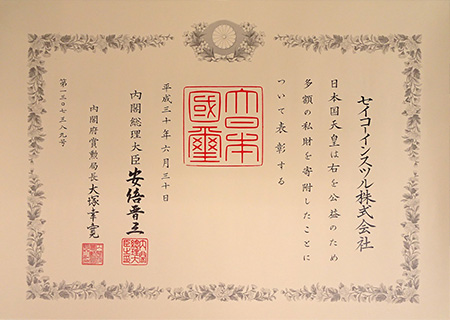 セイコーインスツル株式会社
日本国天皇は右を公益のため
多額の私財を寄附したことに
ついて表彰する
大日本國璽
平成三十年六月三十日
内閣総理大臣 安倍晋三
内閣府賞勲局長 大塚幸寛
第一三〇七三八九号